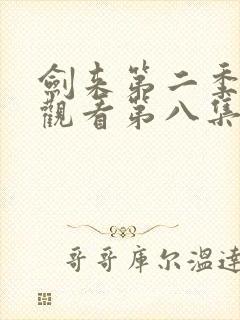 劍来第二季
觀看第八集
哥哥库尔温達